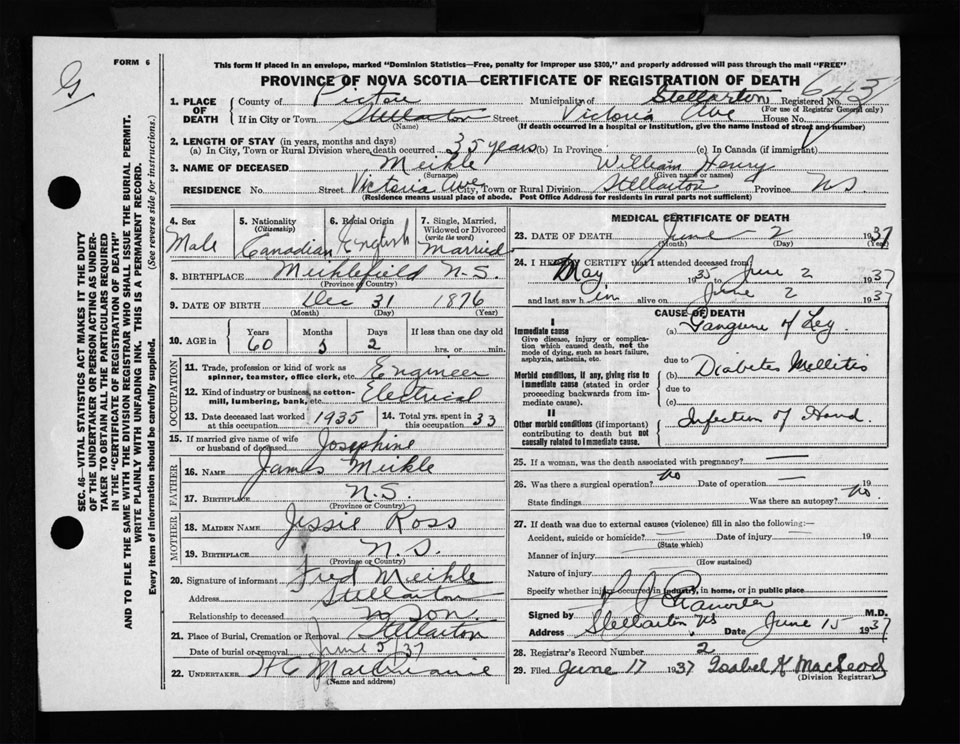 G
FORM 6
This form if placed in an envelope, marked "Dominion Statistics—Free, penalty for improper use $300," and properly addressed will pass through the mail "FREE"
PROVINCE OF NOVA SCOTIA—CERTIFICATE OF REGISTRATION OF DEATH
1. PLACE OF DEATH County of Pictou Municipality of Stellarton Registered No. 643
(For use of Registrar General only)
If in City or Town Stellarton Street Victoria Ave House No.
(Name) (If death occurred in a hospital or institution, give the name instead of street and number)
2. LENGTH OF STAY (in years, months and days)
(a) In City, Town or Rural Division where death occurred 35 years (b) In Province (c) In Canada (if immigrant)
3. NAME OF DECEASED Meikle William Henry
(Surname) (Given name or names)
RESIDENCE No. Street Victoria Ave City, Town or Rural Division Stellarton Province N.S.
(Residence means usual place of abode. Post Office Address for residents in rural parts not sufficient)
4. Sex Male
5. Nationality (Citizenship) Canadian
6. Racial Origin English
7. Single, Married, Widowed or Divorced (write the word) Married
8. BIRTHPLACE Meiklefield N.S.
(Province or Country)
9. DATE OF BIRTH Dec 31 1876
(Month) (Day) (Year)
10. AGE in Years 60 Months 5 Days 2 If less than one day old hrs. or min.
OCCUPATION
11. Trade, profession or kind of work as spinner, teamster, office clerk, etc. Engineer
12. Kind of industry or business, as cotton-mill, lumbering, bank, etc. Electrical
13. Date deceased last worked at this occupation 1935
14. Total yrs. spent in this occupation 33
15. If married give name of wife or husband of deceased Josephine
FATHER
16. NAME James Meikle
17. BIRTHPLACE N.S.
(Province or Country)
MOTHER
18. MAIDEN NAME Jessie Ross
19. BIRTHPLACE N.S.
(Province or Country)
20. Signature of informant Fred Meikle
Address Stellarton
Relationship to deceased Son
21. Place of Burial, Cremation or Removal Stellarton
Date of burial or removal June 5 37
22. UNDERTAKER
(Name and address)
MEDICAL CERTIFICATE OF DEATH
23. DATE OF DEATH June 2 1937
(Month) (Day) (Year)
24. I HEREBY CERTIFY that I attended deceased from
May 1935 to June 2 1937
and last saw h im alive on June 2 1937
CAUSE OF DEATH
I
Immediate cause
Give disease, injury or complication which caused death, not the mode of dying, such as heart failure, asphyxia, asthenia, etc.
(a) Gangrene of Leg
due to
Morbid conditions, if any, giving rise to immediate cause (stated in order proceeding backwards from immediate cause).
(b) Diabetes Mellitis
due to
(c)
II
Other morbid conditions (if important) contributing to death but not causally related to immediate cause.
Infection of Hand
25. If a woman, was the death associated with pregnancy? —
26. Was there a surgical operation? no Date of operation — 19
State findings Was there an autopsy? no
27. If death was due to external causes (violence) fill in also the following:—
Accident, suicide or homicide? Date of injury 19
(State which)
Manner of injury
(How sustained)
Nature of injury
Specify whether injury occurred in industry, in home, or in public place
Signed by M.D.
Address Stellarton NS Date June 15 1937
28. Registrar's Record Number 2
29. Filed June 17 1937 Isabel K MacLeod
(Division Registrar)
SEC. 46—VITAL STATISTICS ACT MAKES IT THE DUTY
OF THE UNDERTAKER OR PERSON ACTING AS UNDER-
TAKER TO OBTAIN ALL THE PARTICULARS REQUIRED
IN THE "CERTIFICATE OF REGISTRATION OF DEATH"
AND TO FILE THE SAME WITH THE DIVISION REGISTRAR WHO SHALL ISSUE THE BURIAL PERMIT.
WRITE PLAINLY WITH UNFADING INK. THIS IS A PERMANENT RECORD.
Every item of information should be carefully supplied. (See reverse side for instructions.)